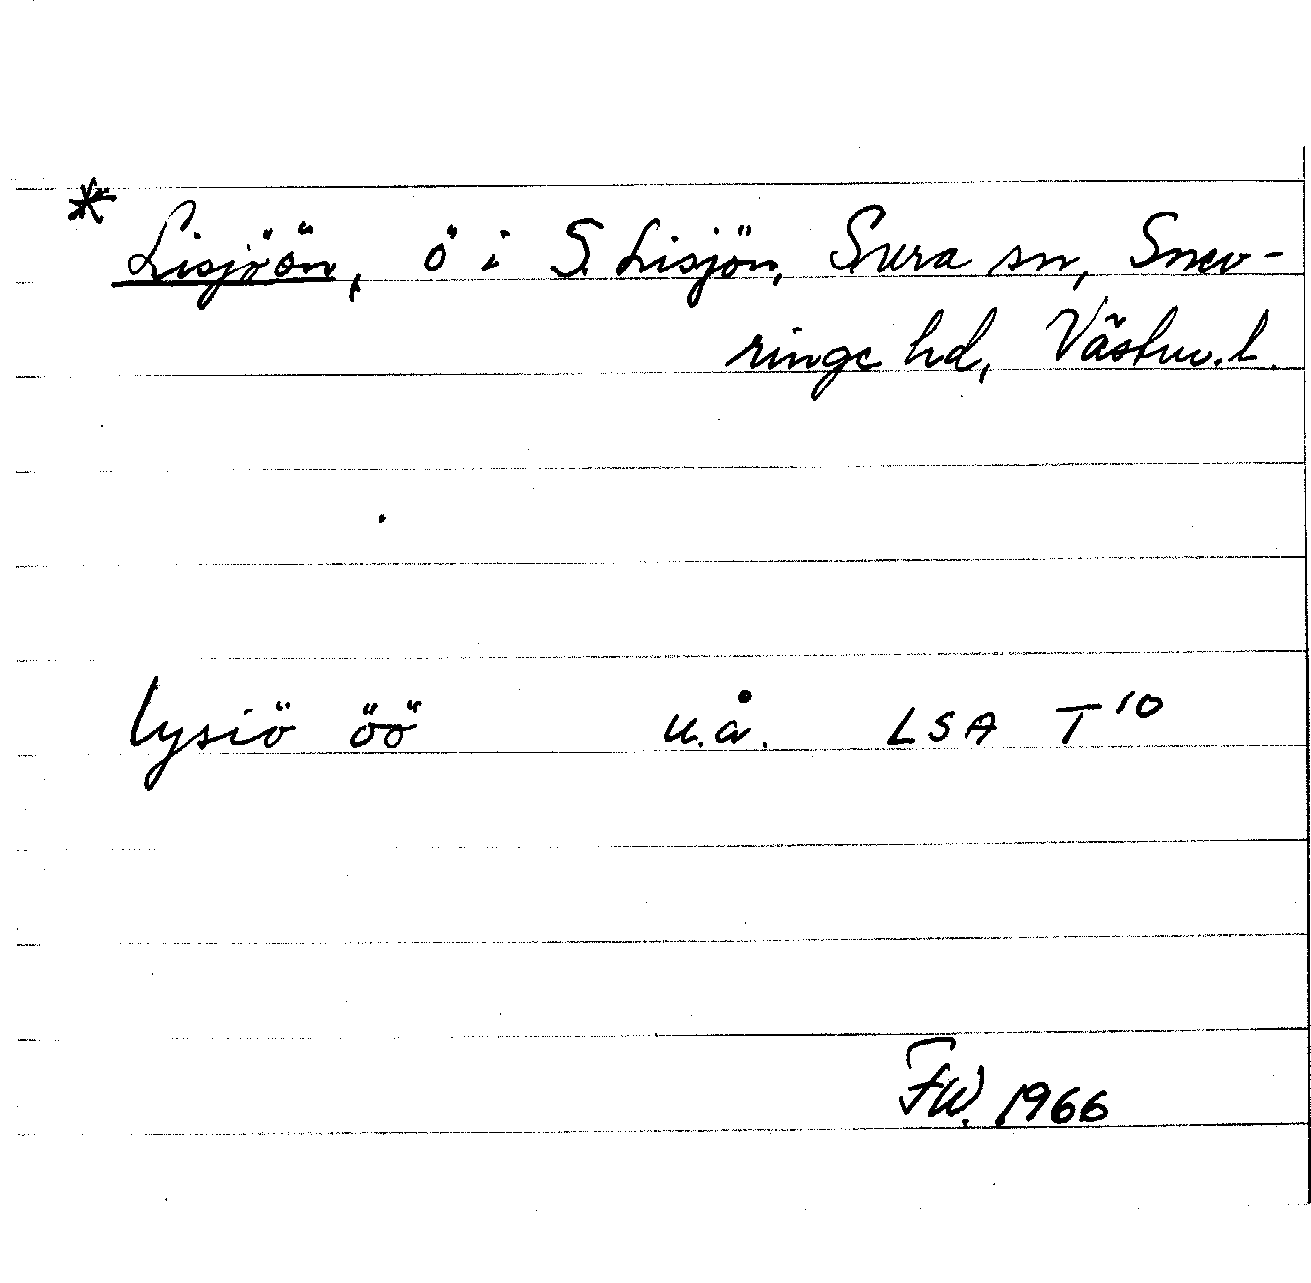 * Lisjöön, ö i S. Lisjön, Sura sn, Snev-
ringe hd, Västm. l.
lysiö öö u.å. LSA T¹⁰
FW. 1966